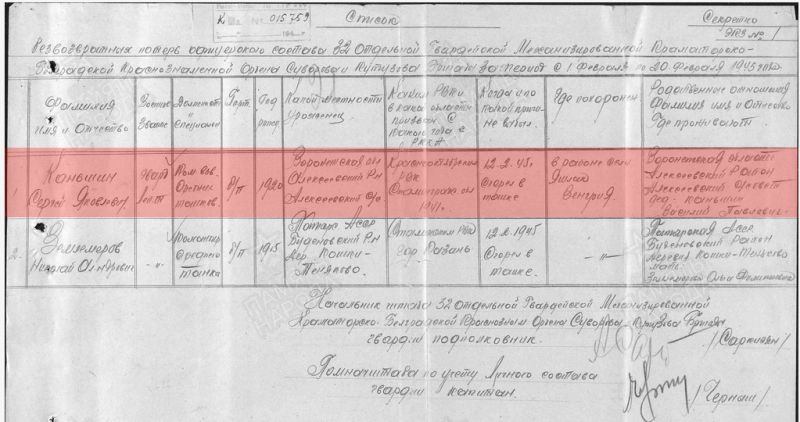 К Вх № 015759
Список
Секретно
Экз № 1
Безвозвратных потерь офицерского состава 32 Отдельной Гвардейской Механизированной Краматорско-
Белградской Краснознаменной Ордена Суворова и Кутузова за период с 1 Февраля по 20 Февраля 1945 года
Фамилия имя и Отчество
Воинское Звание
Должность и Специальн
Парт.
Год рожд.
Какой местности уроженец
Каким РВК и какой области призван. С какого года в РККА
Когда и по какой причине выбыл.
Где похоронен
Родственные отношения Фамилия имя и Отчество Где проживают
1. Каньшин Сергей Яковлевич
Гвард Лей-т
Ком. танков.
б/п
1920
Воронежская обл Алексеевский Р-н Алексеевский с/с
РВК 1941г.
12.2.45г. Сгорел в танке
в районе Венгрия.
Воронежская область Алексеевский Район Алексеевский с/совет Каньшин Василий Павлович
2. Землемеров Николай
-"-
танка
б/п
1915
Татарс. Асср Буденовский Р-н дер Кошки-Теняково
РВК гор. Казань
12.2.1945 Сгорел в танке.
-"-
Татарская Асср Буденовский Район деревня Кошки-Теняково мать Землемерова Ольга
Начальник штаба 32 отдельной Гвардейской Механизированной
Краматорско-Белградской Краснознамен Ордена Суворова, Кутузова
гвардии подполковник.
/Саркисян/
Помначштаба по учету личного состава
гвардии капитан.
/Черныш/